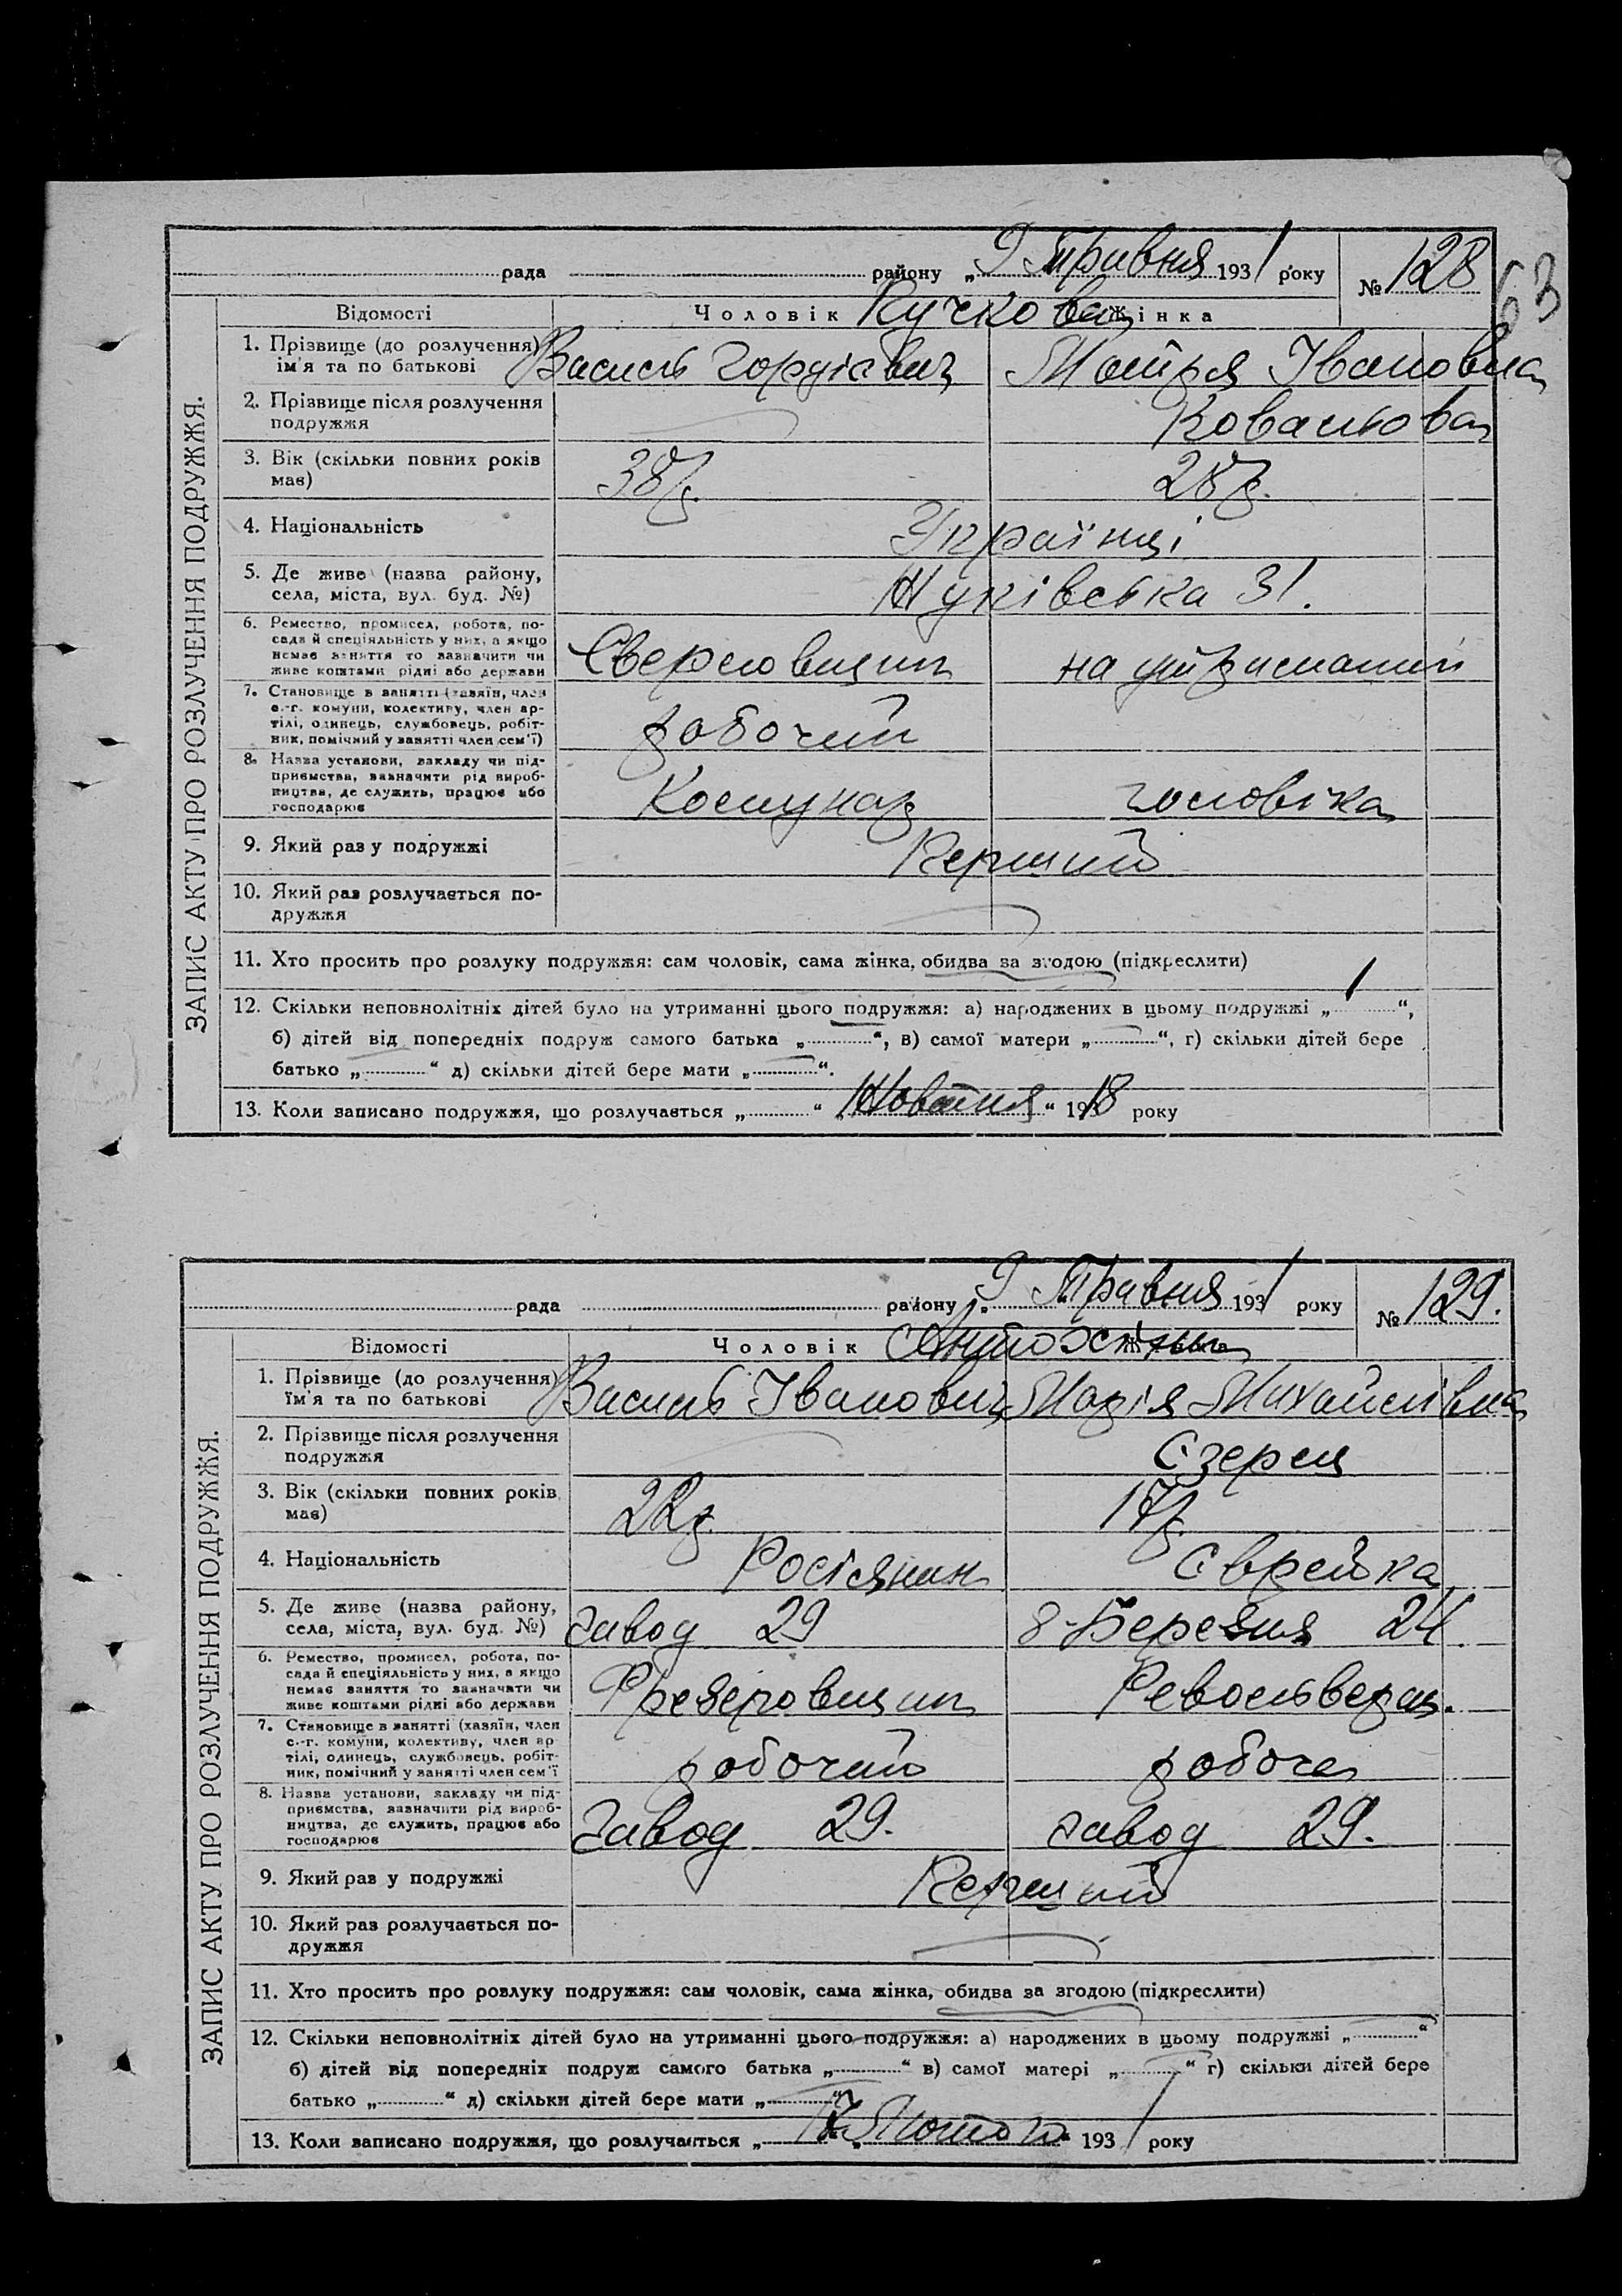 ЗАПИС АКТУ ПРО РОЗЛУЧЕННЯ ПОДРУЖЖЯ.
рада району „9 Травня 1931 року № 128
63
Відомості Чоловік Кучкова Жінка
1. Прізвище (до розлучення) Василь Гордієвич Мотря Івановна
ім'я та по батькові
2. Прізвище після розлучення Ковальова
подружжя
3. Вік (скільки повних років 38 р. 28 р.
має)
4. Національність Українці
5. Де живе (назва району, 31.
села, міста, вул. буд. №)
6. Ремество, промисел, робота, по-
сада й спеціяльність у них, а якщо Сверловщик на утриманні
немає заняття то зазначити чи
живе коштами рідні або держави
7. Становище в занятті (хазяїн, член
с.-г. комуни, колективу, член ар-
тілі, одинець, службовець, робіт- робочий
ник, помічний у занятті член сем'ї)
8. Назва установи, закладу чи під-
приємства, зазначити рід вироб-
ництва, де служить, працює або Комунар чоловіка
господарює
9. Який раз у подружжі Перший
10. Який раз розлучається по-
дружжя
11. Хто просить про розлуку подружжя: сам чоловік, сама жінка, обидва за згодою (підкреслити)
12. Скільки неповнолітніх дітей було на утриманні цього подружжя: а) народжених в цьому подружжі „1“,
б) дітей від попередніх подруж самого батька „ “, в) самої матери „ “, г) скільки дітей бере
батько „ “ д) скільки дітей бере мати „ “.
13. Коли записано подружжя, що розлучається „ “ „Жовтня“ 1918 року
ЗАПИС АКТУ ПРО РОЗЛУЧЕННЯ ПОДРУЖЖЯ.
рада району „9 Травня 1931 року № 129.
Відомості Чоловік
1. Прізвище (до розлучення) Василь Іванович Марія Михайлівна
їм'я та по батькові
2. Прізвище після розлучення
подружжя
3. Вік (скільки повних років 22 р. 17 р.
має)
4. Національність Росіянин Єврейка
5. Де живе (назва району, завод 29 8-Березня 24.
села, міста, вул. буд. №)
6. Ремество, промисел, робота, по-
сада й спеціяльність у них, а якщо
немає заняття то зазначати чи Фрезеровщик Револьверщ.
живе коштами рідні або держави
7. Становище в занятті (хазяїн, член
с.-г. комуни, колективу, член ар
тілі, одинець, службовець, робіт- робочий робоча
ник, помічний у занятті член сем'ї
8. Назва установи, закладу чи під-
приємства, зазначити рід вироб-
ництва, де служить, працює або Завод 29. завод 29.
господарює
9. Який раз у подружжі Перший
10. Який раз розлучається по-
дружжя
11. Хто просить про розлуку подружжя: сам чоловік, сама жінка, обидва за згодою (підкреслити)
12. Скільки неповнолітніх дітей було на утриманні цього подружжя: а) народжених в цьому подружжі „ “
б) дітей від попередніх подруж самого батька „ “ в) самої матері „ “ г) скільки дітей бере
батько „ “ д) скільки дітей бере мати „ “
13. Коли записано подружжя, що розлучається „ Лютого“ 1931 року